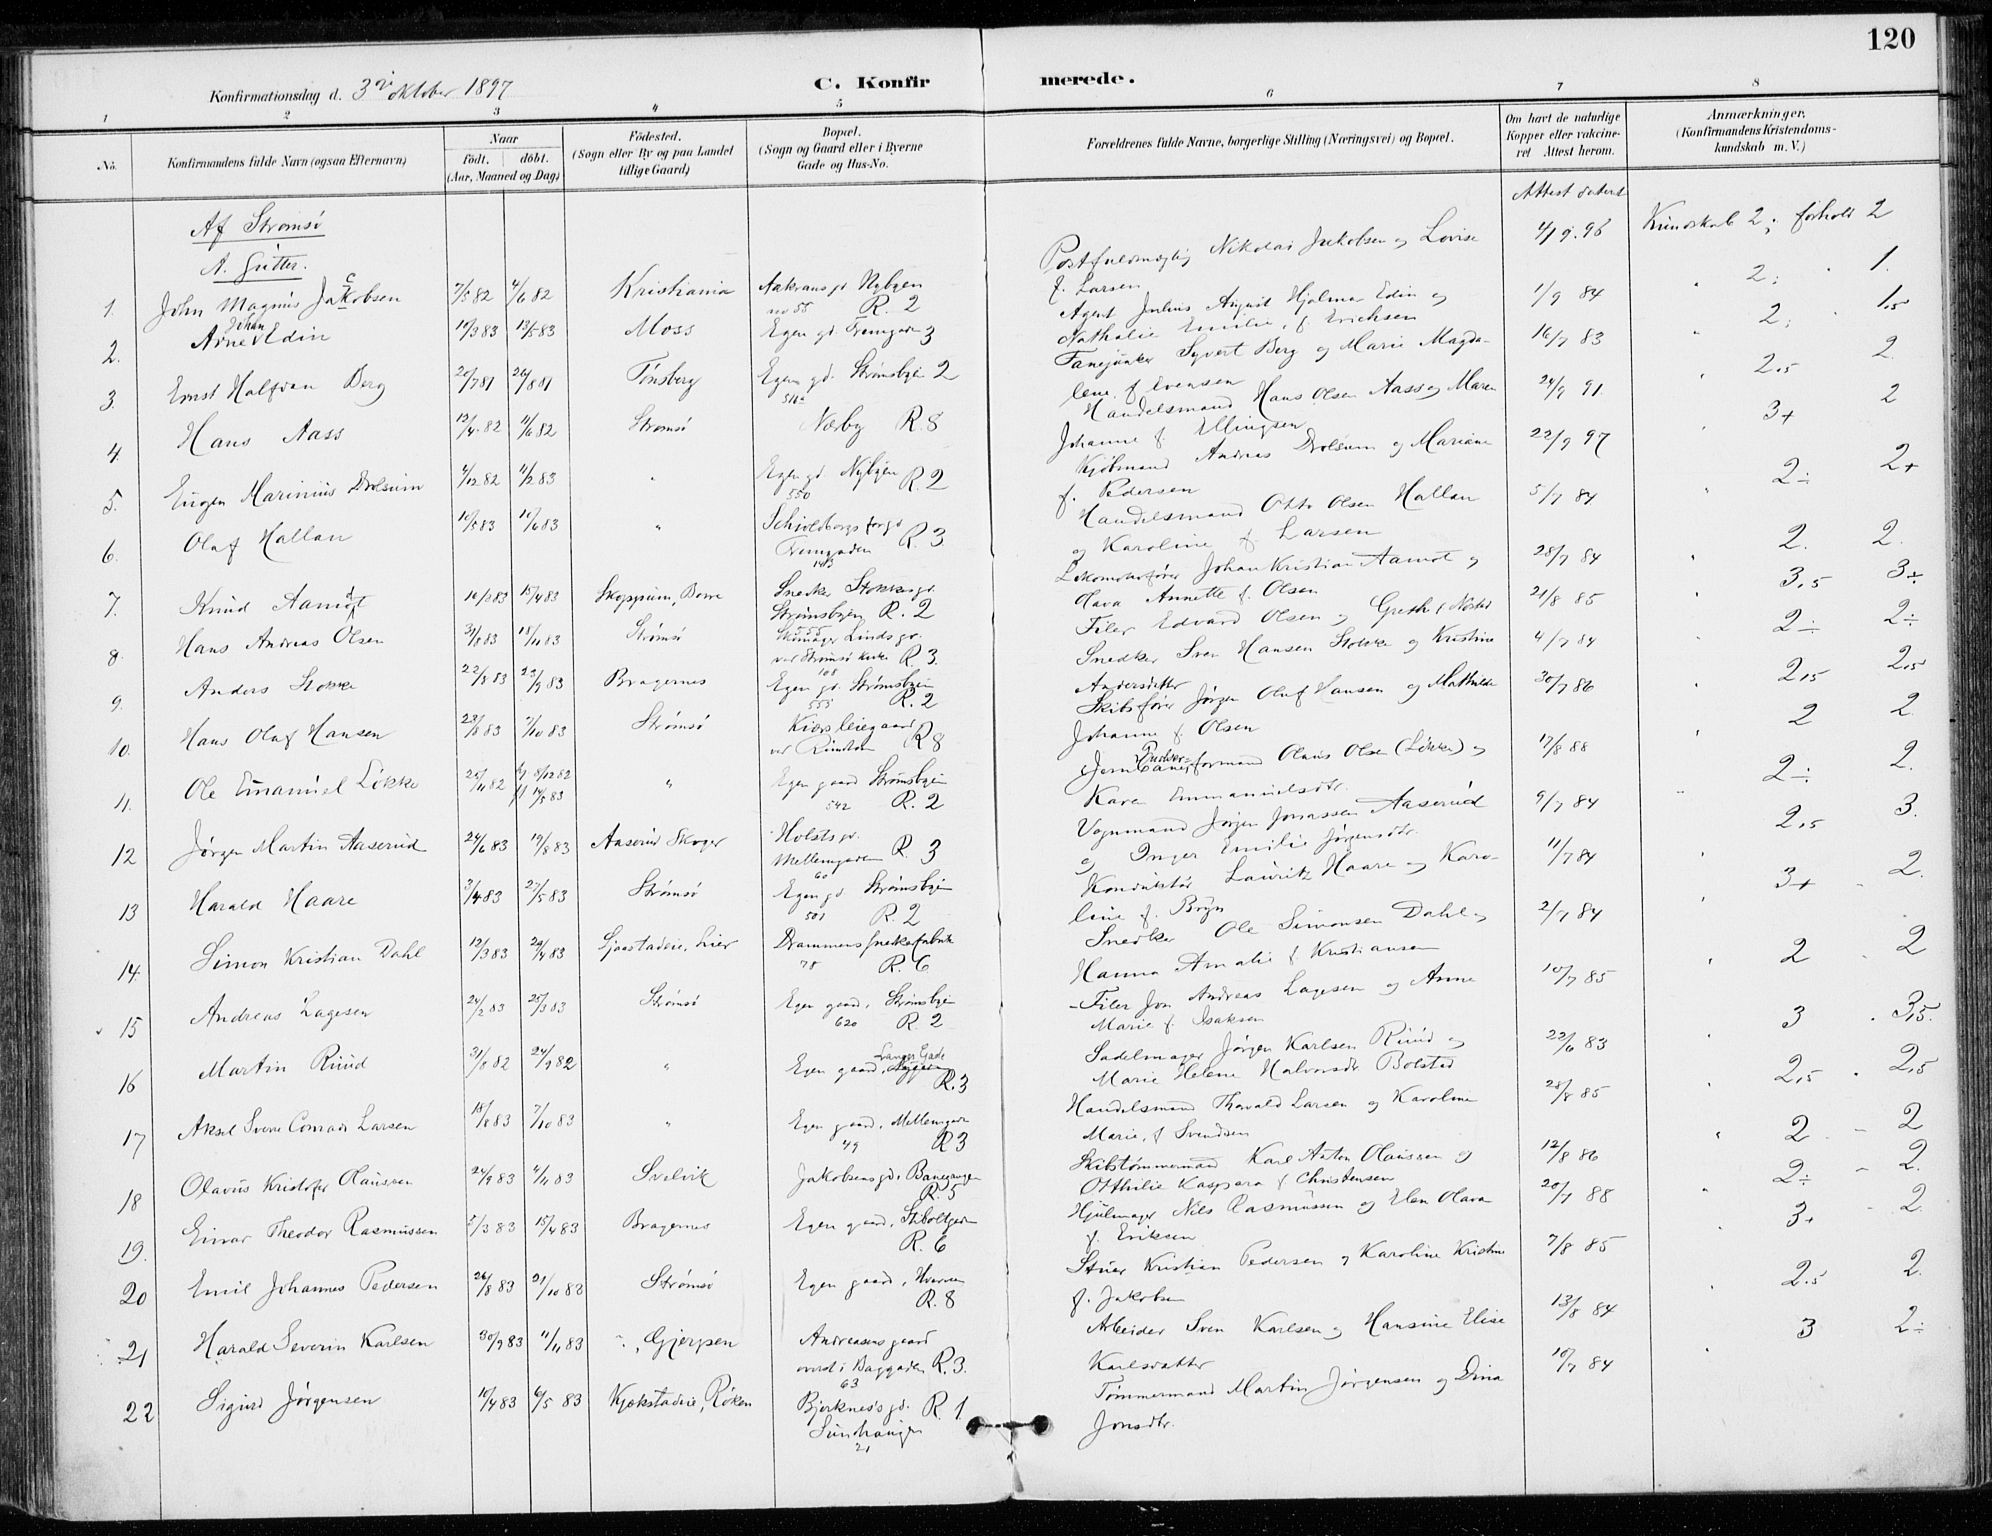 120
Konfirmationsdag d. 3die oktober 1897
C. Konfirmerede.
1 2 3 4 5 6 7 8
No.
Konfirmandens fulde Navn (ogsaa Efternavn)
Naar
født. døbt.
(Aar, Maaned og Dag)
Fødested.
(Sogn eller By og paa Landet
tillige Gaard)
Bopæl.
(Sogn og Gaard eller i Byerne
Gade og Hus-No.
Forældrenes fulde Navne, borgerlige Stilling (Næringsvei) og Bopæl.
Om havt de naturlige
Kopper eller vakcine-
ret Attest herom.
Anmærkninger,
(Konfirmandens Kristendoms-
kundskab m. V.)
Attest datert
Af Strømsø
A. Gutter.
1. John Magnus Jakobsen 7/5 82 4/6 82 Kristiania Aakrans gd Nybyen
no 55 R. 2
Postfuldmægtig Nikolai Jakobsen og Lovise
f. Larsen
4/9 96 Kundskab 2; forhold 2
2. Arne Johan Edin 10/3 83 13/5 83 Moss Egen gd. Tremgaden 3
Agent Julius August Hjalmar Edin og
Nathalie Emilie, f. Erichsen
1/9 84 " 2; " 1.
3. Ernst Halfdan Berg 20/7 81 26/8 81 Tønsberg Egen gd. Strømsbyen 2
Fanejunker Syvert Berg og Marie Magda-
lene f. Evensen
16/7 83 " 2; 1,5
4. Hans Aass 12/4 82 11/6 82 Strømsø Nærby R 8
Handelsmand Hans Olsen Aass og Maren
Johanne f. Ellingsen
24/9 91. " 2,5 2
5. Eugen Marinius Drolsum 4/12 82 11/2 83 " Egen gd Nybyen R. 2
550
Kjøbmand Andreas Drolsum og Mariane
f. Pedersen
22/9 97 " 3+ 2
6. Olaf Hallan 10/5 83 10/6 83 "
Tremgaden R. 3
143
Handelsmand Otto Olsen Hallan
og Karoline f Larsen
5/7 84 " 2÷ 2+
7. Knud Aamodt 10/2 83 15/4 83 Skoppum, Borre Snedker Stokkes gd.
Strømsbyen R. 2
555
Lokomotivfører Johan Kristian Aamot og
Olava Annette f. Olsen
28/7 84 " 2. 2.
8. Hans Andreas Olsen 31/8 83 18/11 83 Strømsø Skomager Lindsgd.
ved Strømsø kirke R. 3.
108
Filer Edvard Olsen og
21/8 85 " 3,5 3÷
9. Anders Stokke 22/8 83 23/9 83 Bragernes Egen gd. Strømsbyen
555 R. 2
Snedker Sven Hansen Stokke og Kristine
Andersdatter
4/7 84 2÷ 2÷
10. Hans Olaf Hansen 23/8 83 7/10 83 Strømsø Kiørs leiegaard
ved Rundtom R 8
Skibsfører Jørgen Oluf Hansen og Mathilde
Johanne f Olsen
30/7 86 " 2,5 2,5
11. Ole Emanuel Løkke 25/11 82 8/12 82
14/5 83 " Egen gaard Strømsbyen
542 R. 2
Jernbaneformand Olaus Olsen (Løkke) og
Karen Emmanuelsdtr.
17/8 88 " 2 2.
12 Jørgen Martin Aaserud 24/6 83 19/8 83 Aaserud Skoger Holsts gd.
Mellemgaden R. 3
60
Vognmand Jørgen Jonassen Aaserud
og Inger Emilie Jørgensdtr.
9/7 84 " 2÷ 2.
13 Harald Haare 3/4 83 27/5 83 Strømsø Egen gd Strømsbyen
501 R. 2
Konduktør Lauritz Haare og Karo-
line f. Bryn
11/7 84 " 2,5 3.
14. Simon Kristian Dahl 12/3 83 29/4 83 Gjaastadeie, Lier Drammens snekkerfabrik
78 R. 6
Snedker Ole Simonsen Dahl og
Hanna Amalie f Kristiansen
2/7 84 " 3+ " 2.
15 Andreas Lagesen 24/2 83 25/3 83 Strømsø Egen gaard, Strømsbyen
620 R. 2
Filer Jon Andreas Lagesen og Anne
Marie f. Isaksen
10/7 85 " 2 " 2
16 Martin Ruud 31/8 82 24/9 82 " Langes Gade
Egen gaard, R. 3
Sadelmager Jørgen Karlsen Ruud og
Marie Helene Halvorsdr Bolstad
22/6 83 3 " 3,5.
17 Aksel Sverre Conrad Larsen 18/8 83 7/10 83 " Egen gaard, Mellemgaden
49 R 3
Handelsmand Thorvald Larsen og Karoline
Marie, f Svendsen
28/8 85 " 2,5 " 2,5
18 Olavus Kristofer Olaussen 24/9 83 4/11 83 Svelvik Jakobsens gd. Banegangen
R. 5
Skibstømmermand Karl Anton Olaussen og
Otthilie Kaspara f Christensen
12/8 86 " 2 " 2
19. Einar Theodor Rasmussen 5/3 83 15/4 83 Bragernes Egen gaard, Stiboltgaden
R. 6
Hjulmager Nils Rasmussen og Elen Olava
f. Eriksen
20/7 88 " 2÷ " 2.
20 Emil Johannes Pedersen 26/8 83 21/10 83 Strømsø Egen gaard, Havnen
R. 8
Stuer Kristian Pedersen og Karoline Kristine
f. Jakobsen
7/8 85 " 3+ " 2
21 Harald Severin Karlsen 30/9 83 11/11 83 ", Gjerpen Andreasens gaard
øverst i Baggaden R. 3.
63
Arbeider Sven Karlsen og Hansine Elise
Karlsdatter
13/8 84 " 2.5 2.
22 Sigurd Jørgensen 10/4 83 6/5 83 Kjekstadeie, Røken Bjerknes's gd. R. 1
Sundhaugen
21
Tømmermand Martin Jørgensen og Dina
Jonsdtr.
10/7 84 " 3 2÷